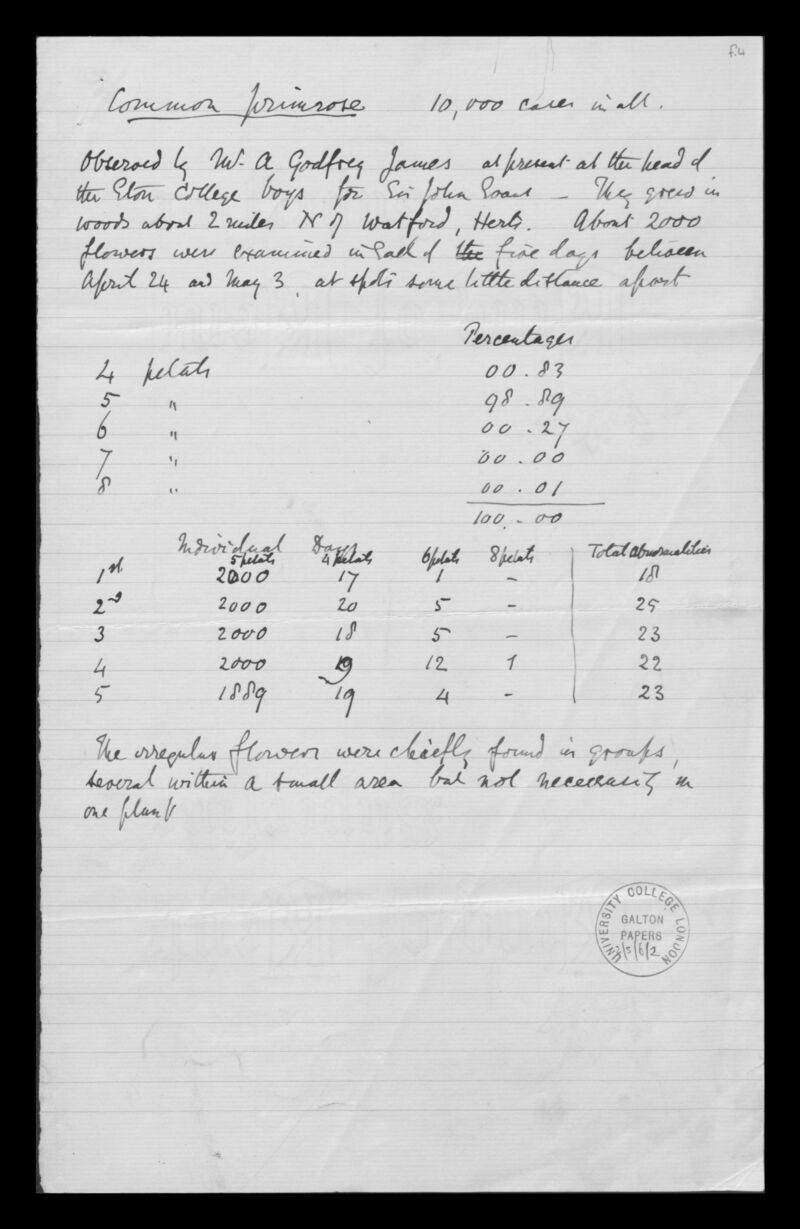 f.4
Common primrose 10,000 cases in all.
Observed by Mr. A Godfrey James at present at the head of
the Eton College boys for Sir John Evans — They grew in
woods about 2 miles N of Watford, Herts. About 2000
flowers were examined in each of the five days between
April 24 and May 3, at spots some little distance apart
Percentages
4 petals 00.83
5 " 98.89
6 " 00.27
7 " 00.00
8 " 00.01
100.00
Individual Days
5 petals 4 petals 6 petals 8 petals Total abnormalities
1st 2000 17 1 - 18
2nd 2000 20 5 - 25
3 2000 18 5 - 23
4 2000 19 12 1 22
5 1889 19 4 - 23
The irregular flowers were chiefly found in groups,
several within a small area but not necessarily in
one plant
UNIVERSITY COLLEGE LONDON
GALTON
PAPERS
2/5/6/2